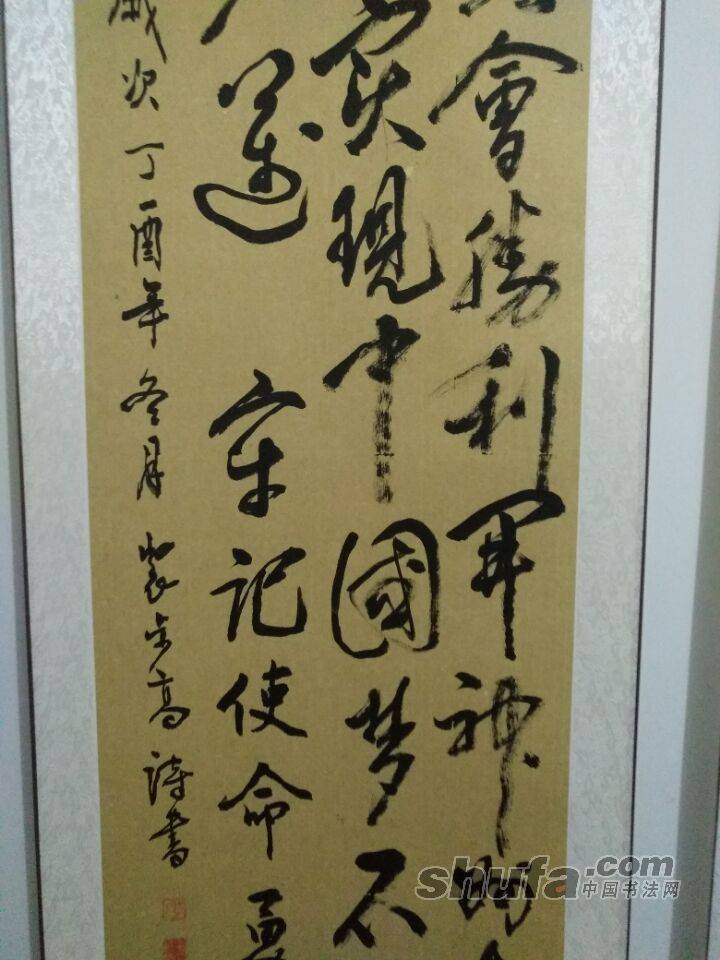 會勝利军神
实現中國梦不
遠 牢记使命
歲次丁酉年冬月 裴 高诗書
shufa.com
中国书法网